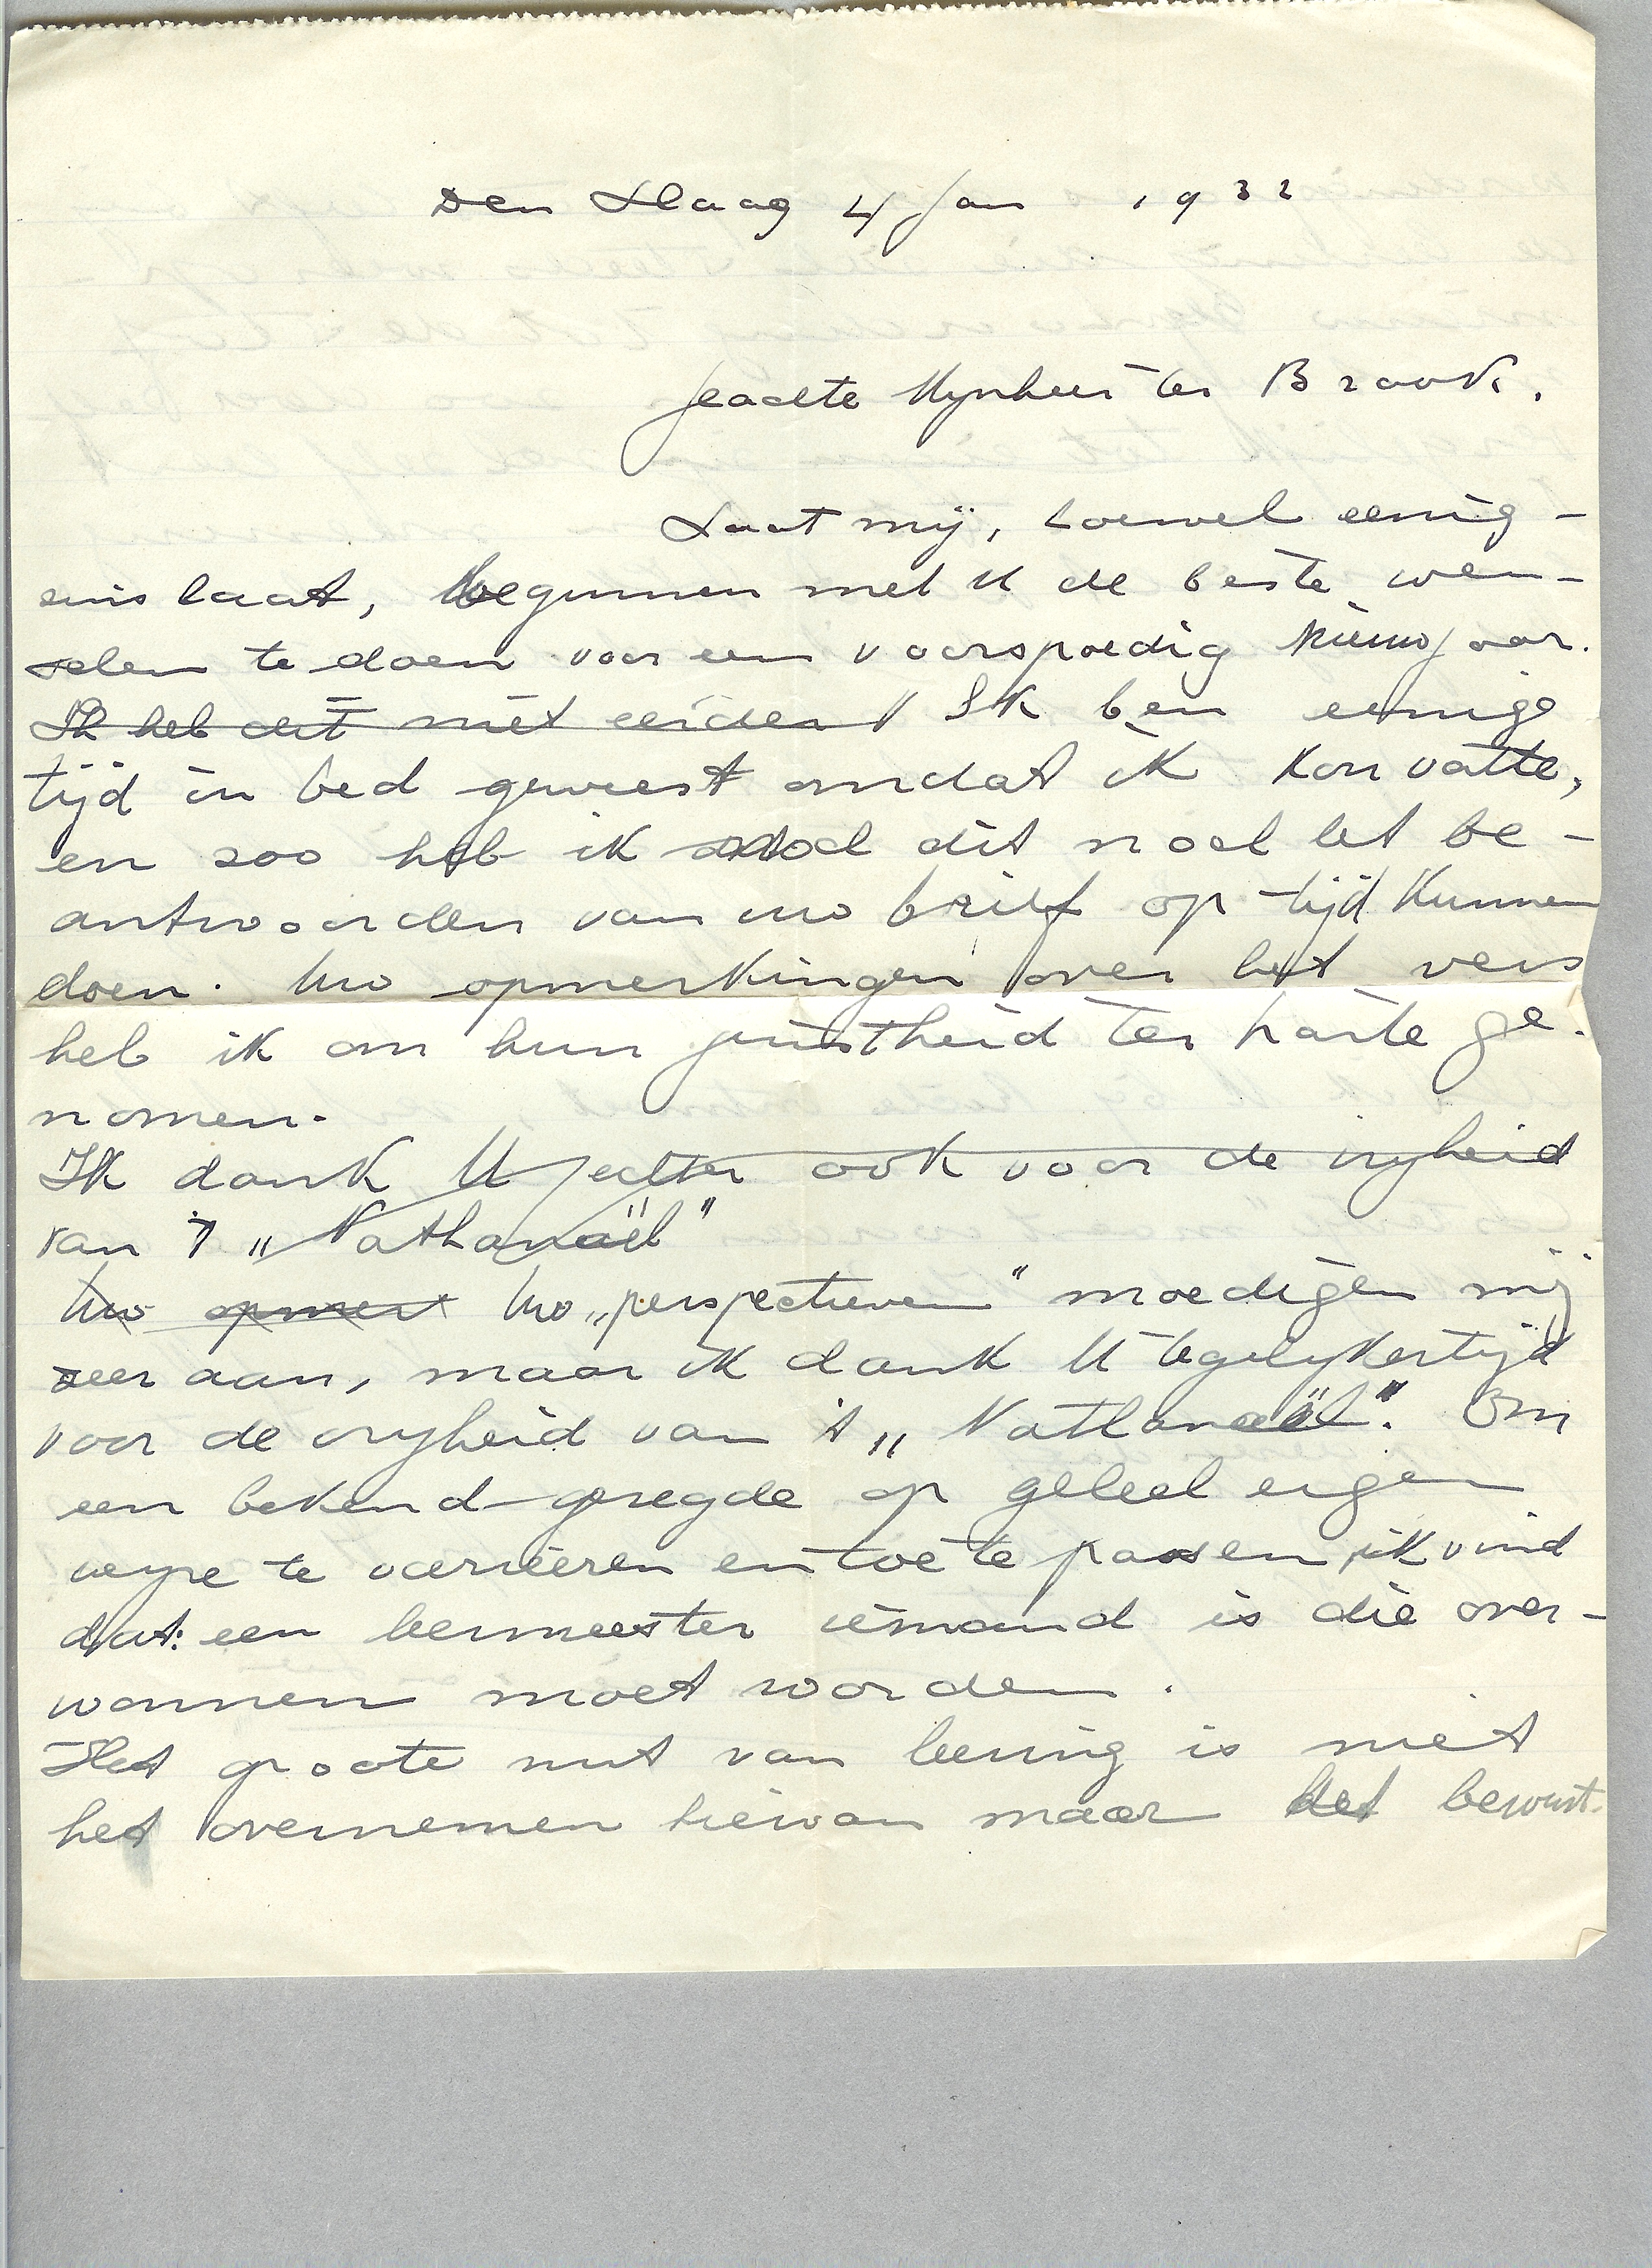 Den Haag 4 Jan 1932
Geachte Mijnheer ter Braak.
Laat mij, hoewel eenig-
sins laat, beginnen met U de beste wen-
schen te doen voor een voorspoedig Nieuwjaar.
Ik heb dit niet eerder Ik ben eenige
tijd in bed geweest omdat ik kou vatte,
en zoo heb ik noch dit noch het be-
antwoorden van uw brief op tijd kunnen
doen. Uw opmerkingen over het vers
heb ik om hun juistheid ter harte ge-
nomen.
Ik dank U echter ook voor de vrijheid
van 't „Nathanaël"
Uw opmerk Uw „perspectieven" moedigen mij
zeer aan, maar ik dank U tegelijkertijd
voor de vrijheid van 't „Nathanaël". Om
een bekend gezegde op geheel eigen
wijze te varieeren en toe te passen, ik vind
dat: een leermeester iemand is die over-
wonnen moet worden.
Het groote nut van leering is niet
het overnemen hiervan maar het bewust-